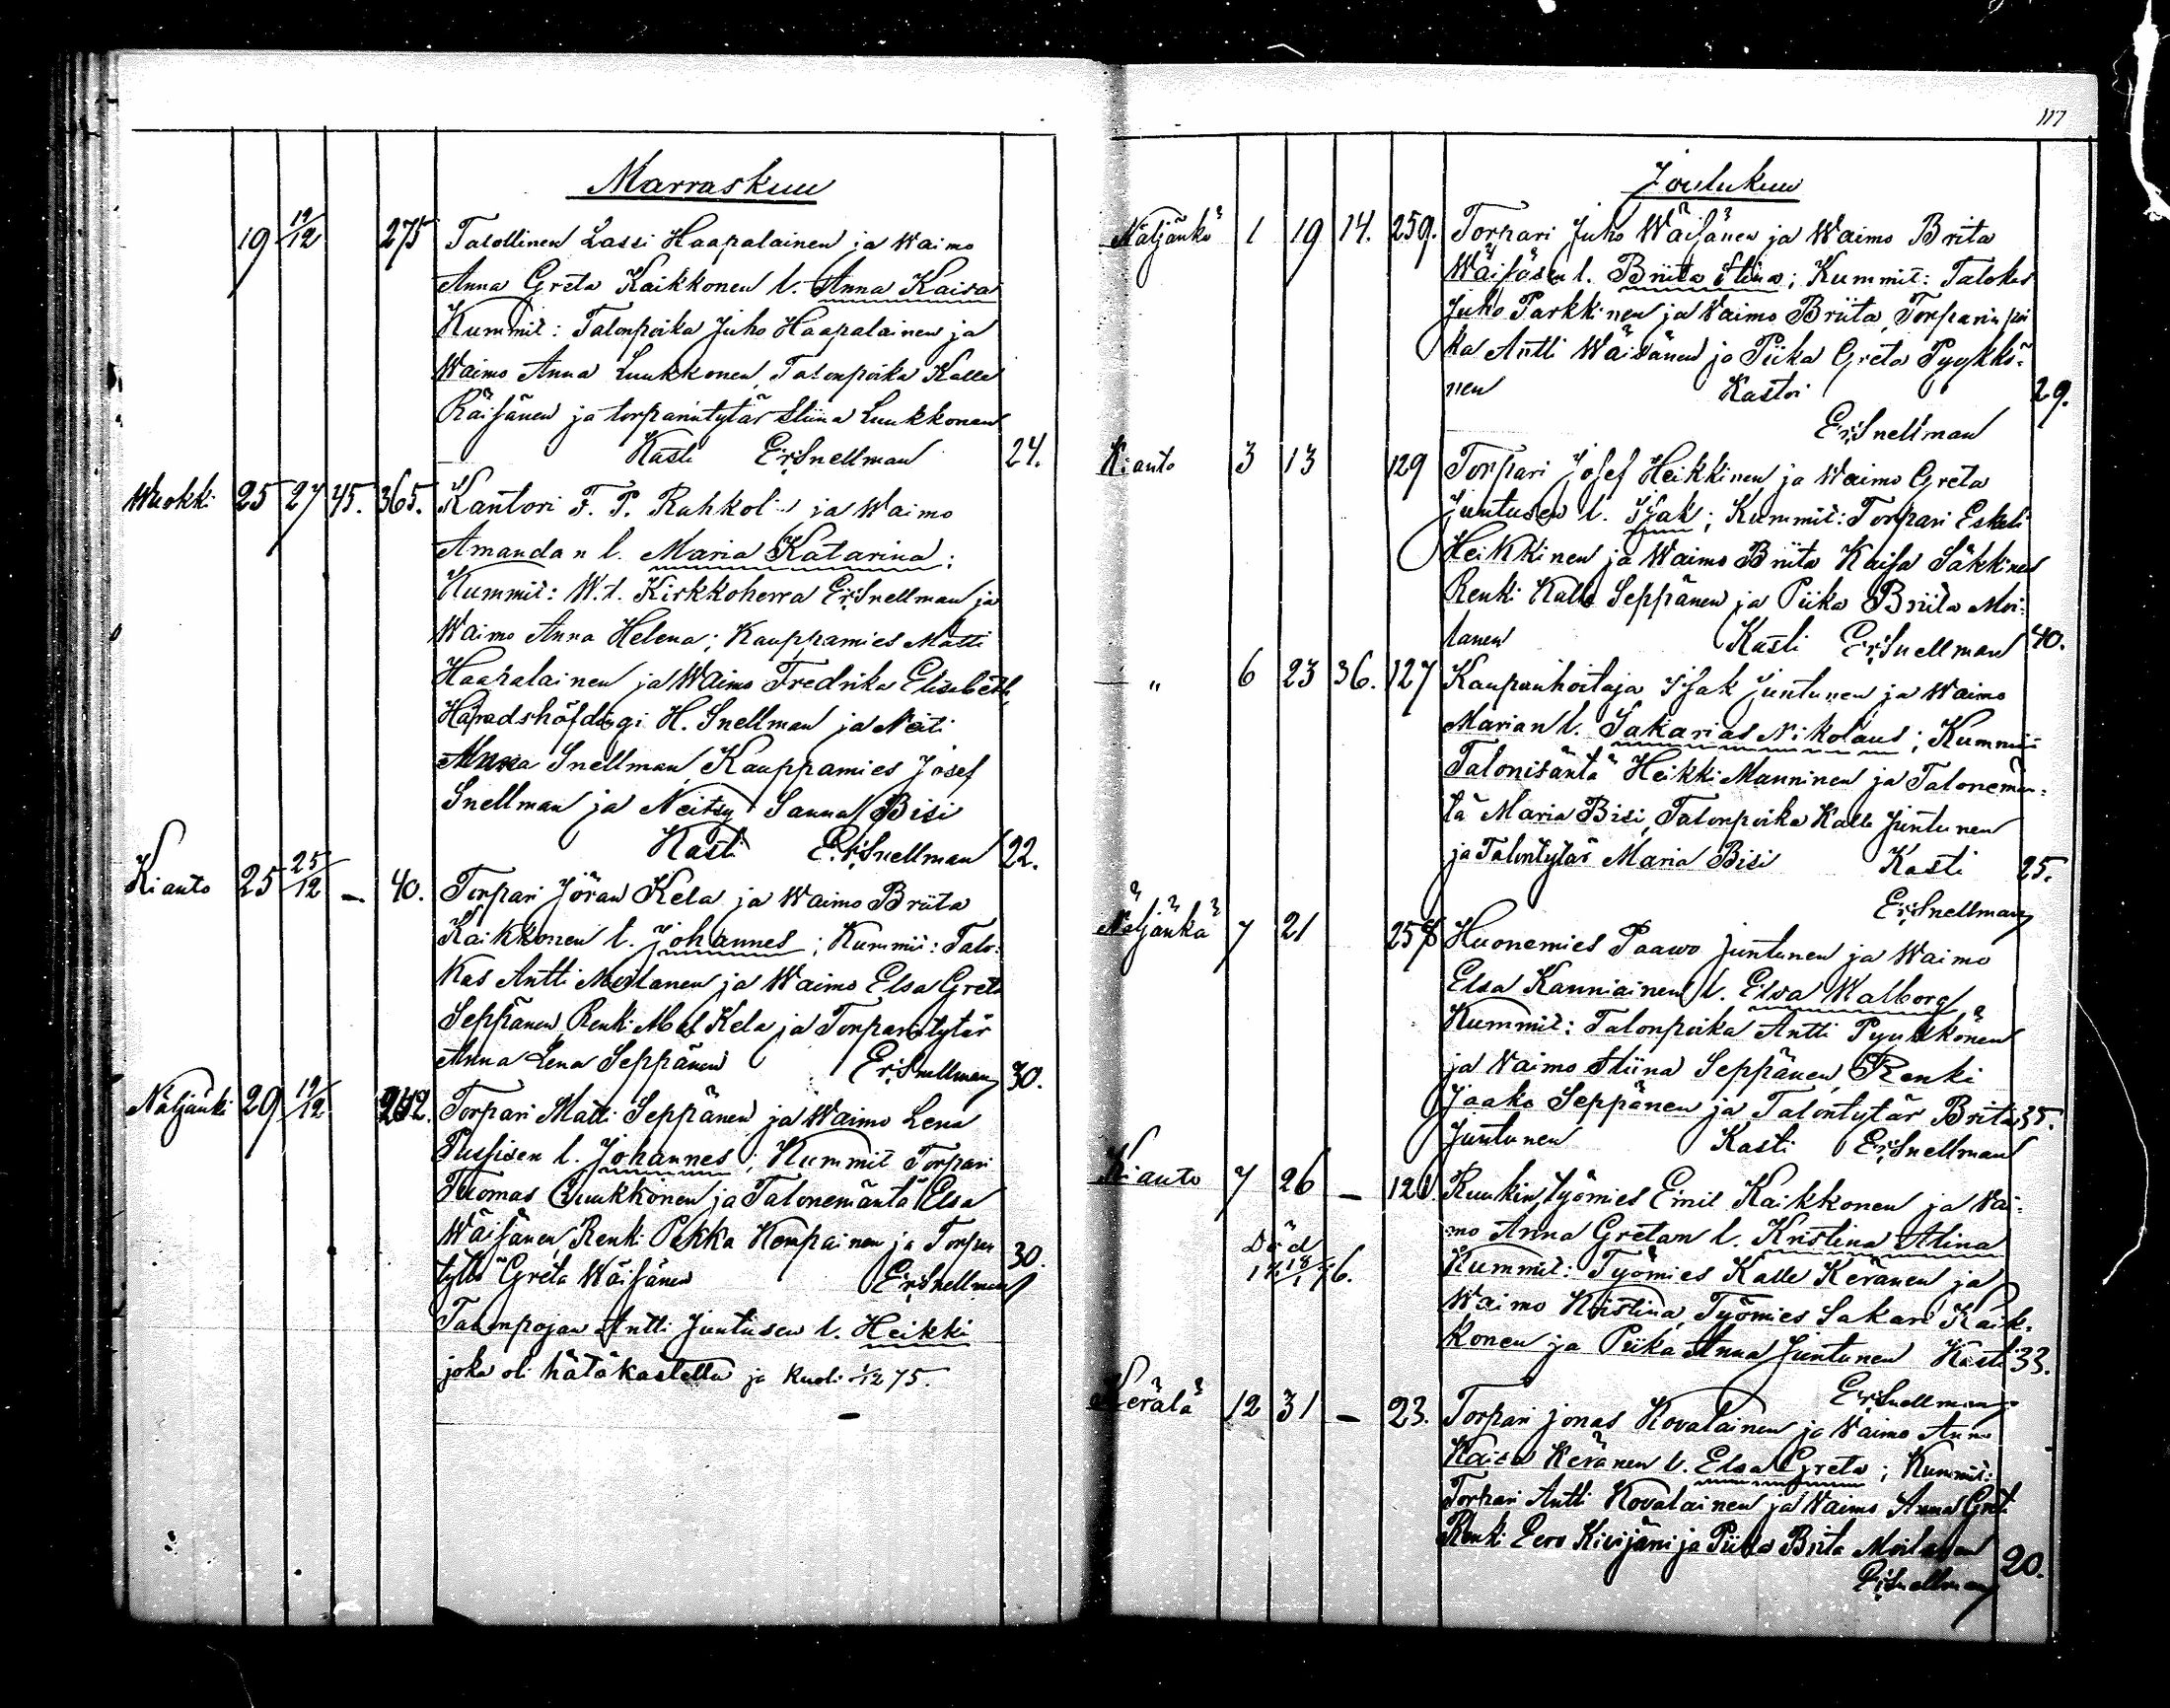 117
Marraskuu
19 19/12 275 Talollinen Lassi Haapalainen ja Waimo
Anna Greta Kaikkonen l. Anna Kaisa
Kummit: Talonpoika Juho Haapalainen ja
Waimo Anna Luukkonen, Talonpoika Kalle
Räisänen ja torparintytär Stiina Luukkonen
Kasti ErSnellman 24.
Wuokki 25 27 45. 365. Kantori F. P. Ruhkol ja Waimo
Amanda n l. Maria Katarina;
Kummit: W.t. Kirkkoherra ErSnellman ja
Waimo Anna Helena; Kauppamies Matti
Haapalainen ja Waimo Fredrika Elisabeth,
Häradshöfdingi H. Snellman ja Neiti
Anna Snellman, Kauppamies Josef
Snellman ja Neitsy Sanna Bisi
Kasti ErSnellman 22.
Kianto 25 25/12 – 40. Torpari Jöran Kela ja Waimo Briita
Kaikkonen l. Johannes; Kummit: Talo-
kas Antti Moilanen ja Waimo Elsa Greta
Seppänen, Renki Kela ja Torparintytär
Anna Lena Seppänen ErSnellman 30.
Näljänki 29 19/12 Torpari Matti Seppänen ja Waimo Lena
Pussisen l. Johannes; Kummit Torpari
Tuomas Luukkonen ja Talonemäntä Elsa
Wäisänen, Renki Pekka Kempainen ja Torpar
tytär Greta Wäisänen ErSnellman 30.
Talonpojan Antti Juntusen l. Heikki
joka oli hätäkastettu ja kuoli 1/12 75.
Joulukuu
Näljänkä 1 19 14. 259. Torpari Juho Wäisänen ja Waimo Brita
Wäisäsen l. Briita Stina; Kummit: Talokas
Juho Parkkinen ja Waimo Briita, Torparin poi
ka Antti Wäisänen ja Piika Greta Pyykkö-
nen Kastoi 29.
ErSnellman
Kianto 3 13 129 Torpari Josef Heikkinen ja Waimo Greta
Juntusen l. Isak; Kummit: Torpari Eskeli
Heikkinen ja Waimo Briita Kaisa Säkkinen
Renki Kalle Seppänen ja Piika Briita Moi-
lanen Kasti ErSnellman 40.
– " 6 23 36. 127 Kaupanhoitaja Isak Juntunen ja Waimo
Marian l. Sakarias Nikolaus; Kummit
Talonisäntä Heikki Manninen ja Talonemän-
tä Maria Bisi, Talonpoika Kalle Juntunen
ja Talontytär Maria Bisi Kasti 25.
ErSnellman
Näljänkä 7 21 258 Huonemies Paavo Juntunen ja Waimo
Elsa Kanniainen l. Elsa Walborg
Kummit: Talonpoika Antti Pyykkönen
ja Waimo Stiina Seppänen, Renki
Jaako Seppänen ja Talontytär Brita 35.
Juntunen Kasti ErSnellman
Kianto 7 26 – Ruukin työmies Emil Kaikkonen ja Wai-
mo Anna Gretan l. Kristina Alina
Död
Kummit: Työmies Kalle Keränen ja
Waimo Kristina, Työmies Sakari Kaik-
konen ja Piika Anna Juntunen Kasti 33.
ErSnellman
Kerälä 12 31 – 23. Torpari Jonas Kovalainen ja Waimo Anna
Kaisa Keränen l. Elsa Greta; Kummit:
Torpari Antti Kovalainen ja Waimo Anna Greta
Renki Eero Kivijärvi ja Piika Brita Moilanen 20.
ErSnellman